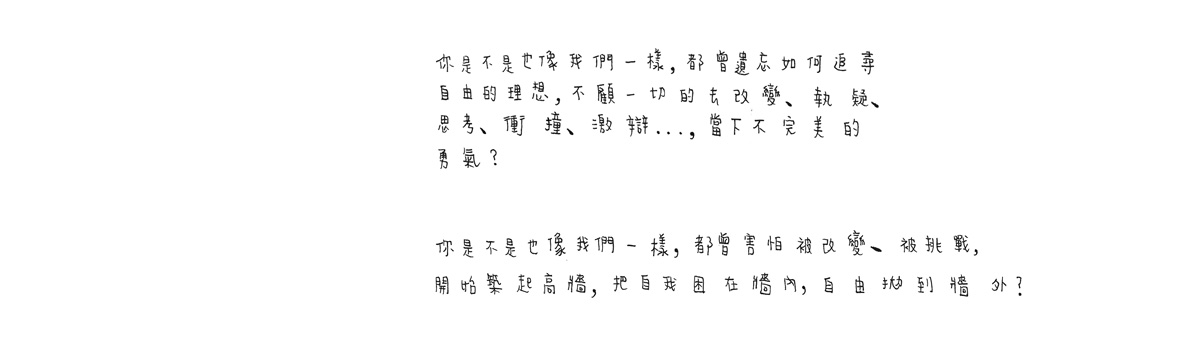 你是不是也像我們一樣,都曾遺忘如何追尋
自由的理想,不顧一切的去改變、執疑、
思考、衝撞、激辯...,當下不完美的
勇氣?
你是不是也像我們一樣,都曾害怕被改變、被挑戰,
開始築起高牆,把自我困在牆內,自由拋到牆外?